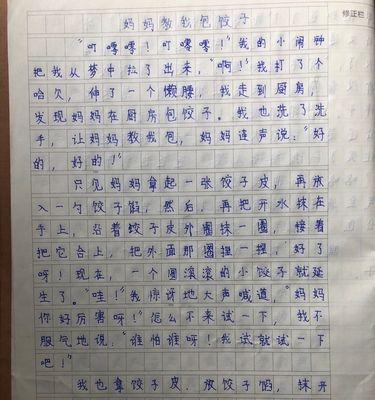 修正栏
妈妈教我包饺子
“叮零零！叮零零！”我的小闹钟
把我从梦中拉了出来，“啊！”我打了个
哈欠，伸了一个懒腰，我走到厨房，
发现妈妈在厨房包饺子。我也洗了洗
手，让妈妈教我包，妈妈连声说：“好
的，好的！”
只见妈妈拿起一张饺子皮，再放
入一勺饺子馅，然后，再把开水抹在
手上，沿着饺子皮外圈抹一圈，接着
把它合上，把外面那圈捏一捏，好了
呀！现在，一个圆滚滚的小饺子就诞
生了。“哇！”我惊讶地大声喊道，“妈妈
你好厉害呀！”怎么不来试一下，我不
服气地说：“谁怕谁呀！我试就试一下
吧！”
我也拿饺子皮，放饺子馅，抹开